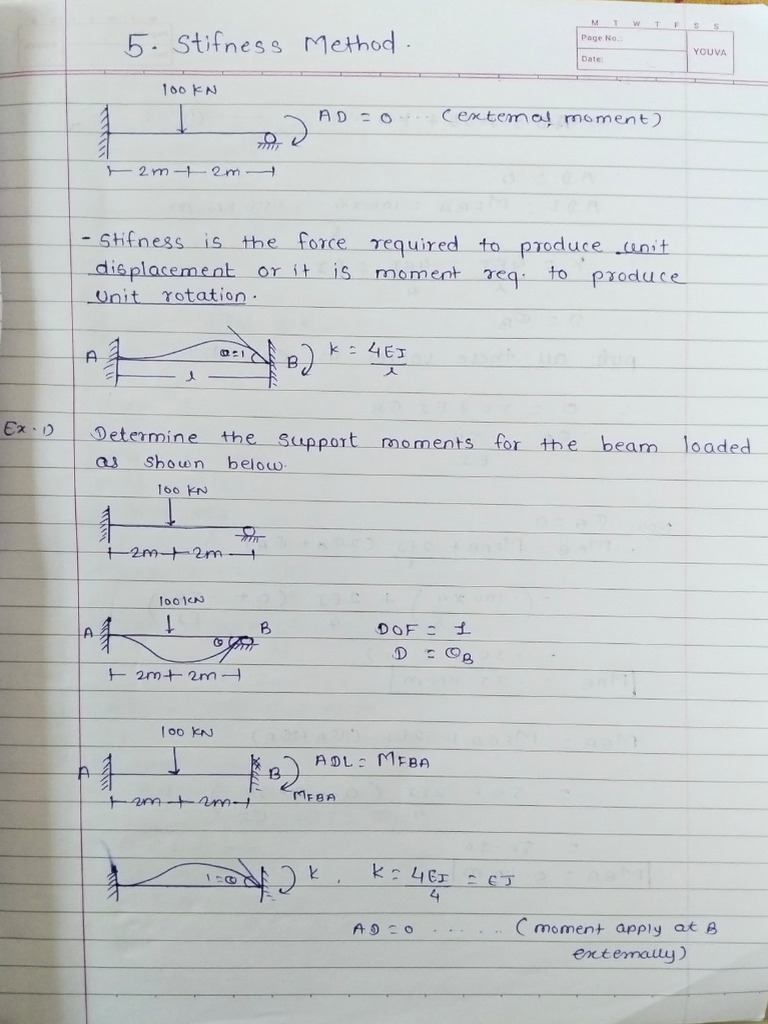 M T W T F S S
Page No.:
YOUVA
Date:
5. Stifness Method.
100 KN
AD = 0 ... (external moment)
2m 2m
- Stifness is the force required to produce unit
displacement or it is moment req. to produce
unit rotation.
A θ=1 B K = 4EI/l
l
Ex. 1) Determine the support moments for the beam loaded
as shown below.
100 KN
2m 2m
100 KN
A θ B DOF = 1
D = θB
2m 2m
100 KN
A B ADL = MFBA
MFBA
2m 2m
1=θ K, K = 4EI/4 = EI
AD = 0 ...... (moment apply at B
externally)